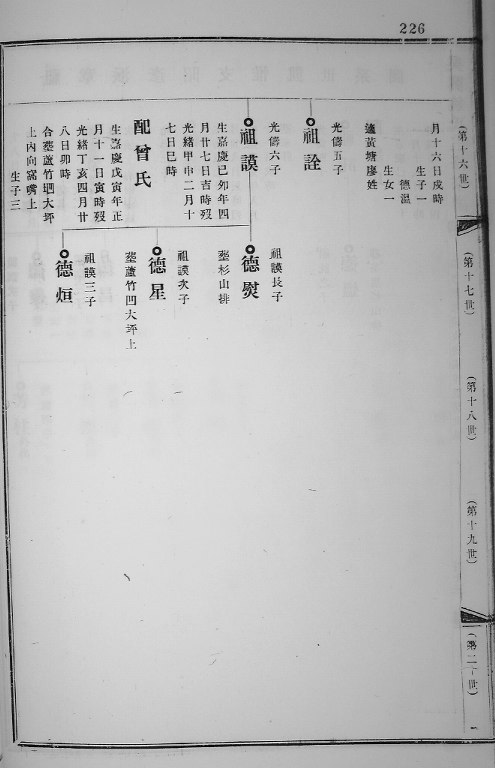 226
(第十六世)
(第十七世)
(第十八世)
(第十九世)
(第二十世)
月十六日戌時
生子一
德溫
生女一
適黃塘廖姓
光儔五子
祖詮
光儔六子
祖謨
生嘉慶己卯年四
月廿七日吉時歿
光緒甲申二月十
七日巳時
配曾氏
生嘉慶戊寅年正
月十一日寅時歿
光緒丁亥四月廿
八日卯時
合塟蘆竹凹大坪
上內向窩嘴上
生子三
祖謨長子
德熨
塟杉山排
祖謨次子
德星
塟蘆竹凹大坪上
祖謨三子
德烜